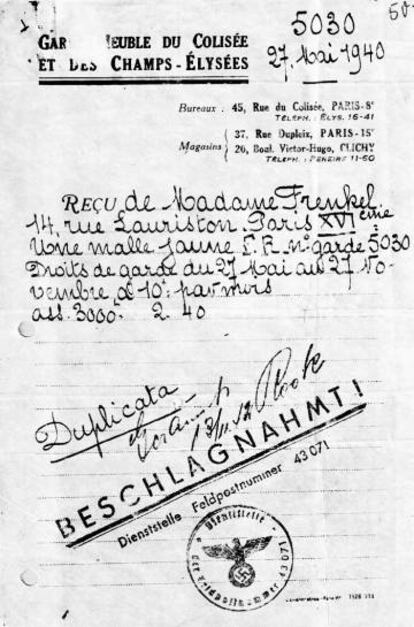 5030 50
GAR EUBLE DU COLISÉE
ET DES CHAMPS-ÉLYSÉES
27 Mai 1940
Bureaux : 45, Rue du Colisée, PARIS-8e
TÉLÉPH. : ÉLYS. 16-41
Magasins { 37, Rue Dupleix, PARIS-15e
20, Boul. Victor-Hugo, CLICHY
TÉLÉPH. : PEREIRE 11-60
REÇU de Madame Frenkel
14, rue Lauriston Paris XVIème
Une malle jaune F. R. n° garde 5030
Droits de garde du 27 Mai au 27 No-
vembre à 10f par mois
ass. 3000. 2.40
Duplicata
BESCHLAGNAHMT!
Dienststelle Feldpostnummer 43071
Dienststelle
der Feldpostnummer 43071